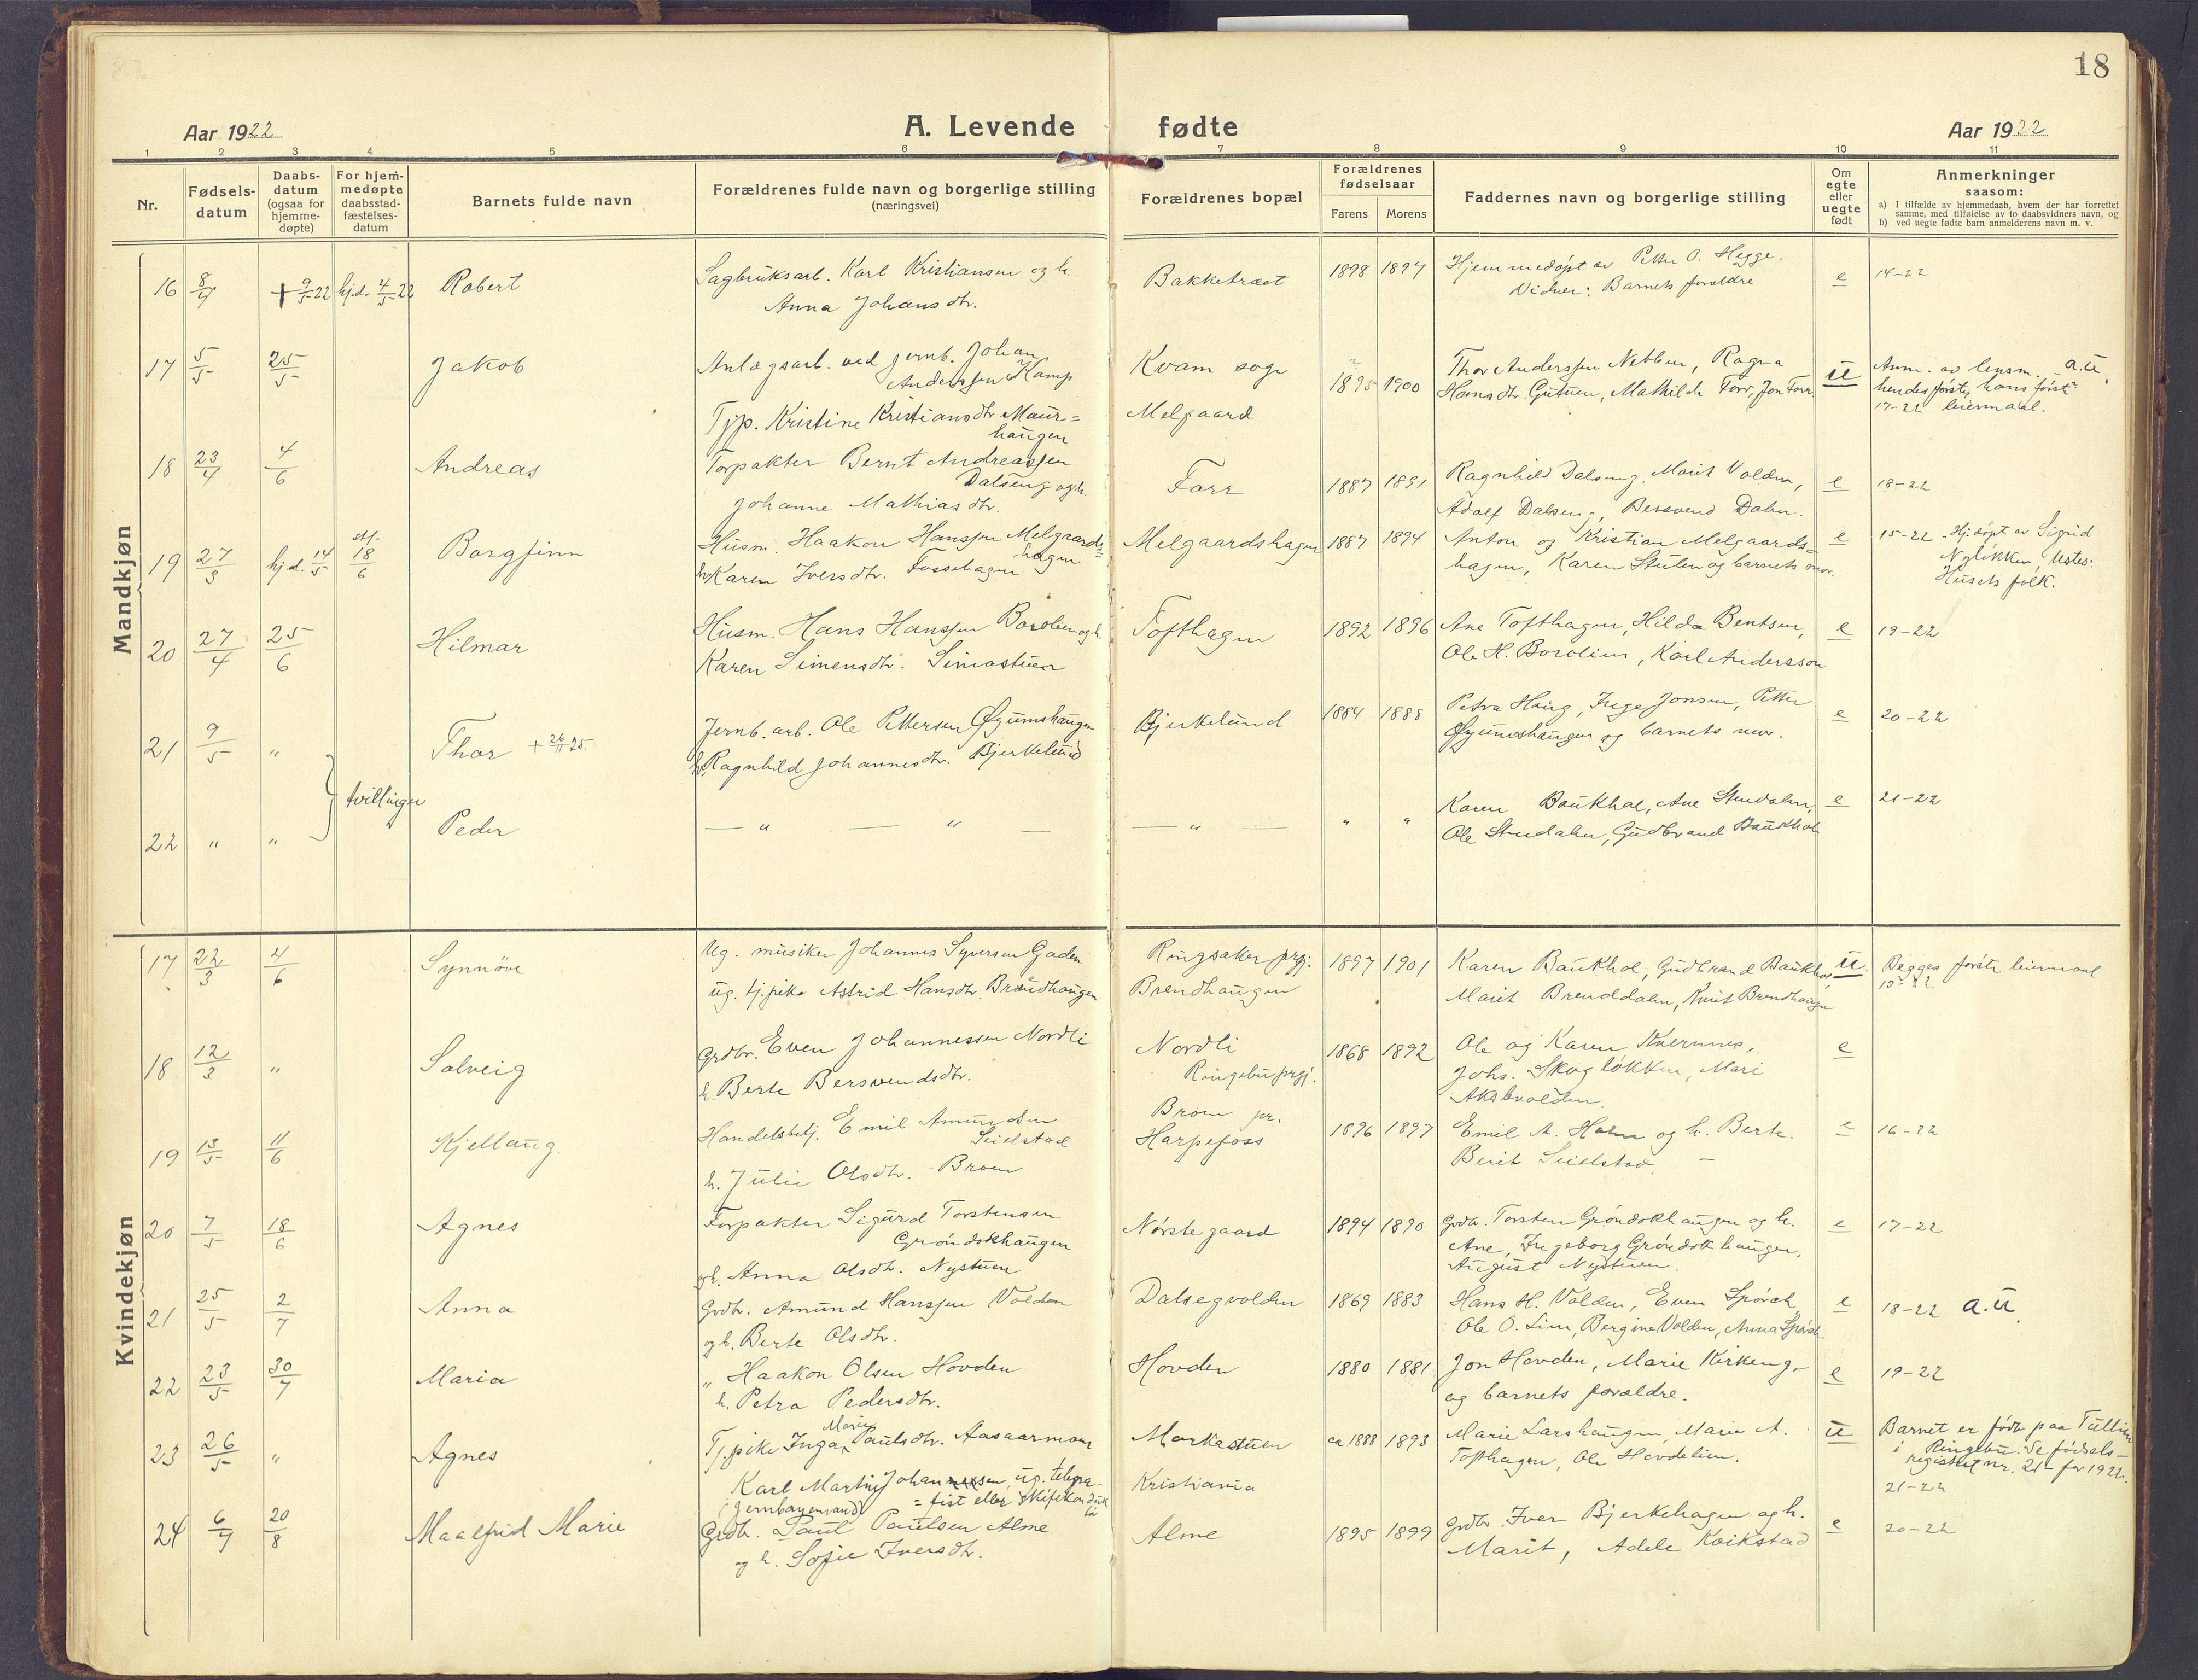 18
Aar 1922
A. Levende fødte
Aar 1922
1 2 3 4 5 6 7 8 9 10 11
Nr.
Fødsels-
datum
Daabs-
datum
(ogsaa for
hjemme-
døpte)
For hjem-
medøpte
daabsstad-
fæstelses-
datum
Barnets fulde navn
Forældrenes fulde navn og borgerlige stilling
(næringsvei)
Forældrenes bopæl
Forældrenes
fødselsaar
Farens
Morens
Faddernes navn og borgerlige stilling
Om
egte
eller
uegte
født
Anmerkninger
saasom:
a) I tilfælde av hjemmedaab, hvem der har forrettet
samme, med tilføielse av to daabsvidners navn, og
b) ved uegte fødte barn anmelderens navn m. v.
Mandkjøn
16 8/4 + 9/5 22 hj.d. 4/5 22 Robert
Sagbruksarb. Karl Kristiansen og h.
Anna Johansdtr.
Bakketræet 1898 1897
Hjemmedøpt av Petter O. Hegge.
Vidner: Barnets forældre
e 14-22
17 5/5 25/5 Jakob
Anlægsarb. ved jernb. Johan
Anderssen Kamp
Tjp. Kristine Kristiansdtr. Maur=
haugen
Kvam sogn
Melgaard
1895 1900
Thor Anderssen Nebben, Ragna
Hansdtr. Gutuen, Mathilde Forr, Jon Forr
u Anm. av lensm. a.u.
hendes første, hans første
17-22 leiermaal.
18 23/4 4/6 Andreas
Forpakter Bernt Andreassen
Dalseng og h.
Johanne Mathiasdtr.
Forr 1887 1891
Ragnhild Dalseng, Marit Volden,
Adolf Dalseng, Bersvend Dalen.
e 18-22
19 27/3 hj.d. 14/5 stf. 18/6 Borgfinn
Husm. Haakon Hanssen Melgaards=
hagen
h. Karen Iversdtr. Fossehagen
Melgaardshagen 1887 1894
Anton og Kristian Melgaards=
hagen, Karen Stulen og barnets mor.
e 15-22 Hj.døpt av Sigrid
Nyløkken, testes:
Husets folk.
20 27/4 25/6 Hilmar
Husm. Hans Hanssen Borolien og h.
Karen Simensdtr. Simastuen
Tofthagen 1892 1896
Ane Tofthagen, Hilda Bentsen,
Ole H. Borolien, Karl Andersson
e 19-22
21 9/5 " Thor + 26/11 25.
Jernb. arb. Ole Pettersen Øyumshaugen
h. Ragnhild Johannesdtr. Bjerkelund
Bjerkelund 1884 1888
Petra Haug, Inga Jonsen, Petter
Øyumshaugen og barnets mor.
e 20-22
tvillinger
22 " " Peder
— " — " —
— " — " "
Karen Baukhol, Ane Stendalen,
Ole Stendalen, Gudbrand Baukhol
e 21-22
Kvindekjøn
17 22/3 4/6 Synnöve
Ug. musiker Johannes Syversen Gaden
ug. tj.pike Astrid Hansdtr. Brendhaugen
Ringsaker prgj.
Brendhaugen
1897 1901
Karen Baukhol, Gudbrand Baukhol,
Marit Brenddalen, Knut Brendhaugen
u. Begges første leiermaal
18 12/3 " Solveig
Grdbr. Even Johannessen Nordli
h. Berte Bersvendsdtr.
Nordli
Ringebu prgj.
1868 1892
Ole og Karen Kvernnes,
Johs. Skogløkken, Mari
e
19 13/5 11/6 Kjellaug.
Handelsbetj. Emil Amundsen
Seielstad
h. Julie Olsdtr. Broen
Broen pr.
Harpefoss
1896 1897
Emil A. Holen og h. Berte.
Berit Seielstad —
e 16-22
20 7/5 18/6 Agnes
Forpakter Sigurd Torstensen
Gröndokhaugen
og h. Anna Olsdtr. Nystuen
Nørstegaard 1894 1890
Grdbr. Torsten Gröndokhaugen og h.
Ane, Ingeborg Gröndokhaugen,
August Nystuen.
e 17-22
21 25/5 2/7 Anna
Grdbr. Amund Hanssen Volden
og h. Berte Olsdtr.
Dalsegvolden 1869 1883
Hans H. Volden, Even Spörck
Ole O. Lien, Bergine Volden, Anna Spörck
e 18-22 a.u.
22 23/5 30/7 Maria
" Haakon Olsen Hovden
h. Petra Pedersdtr.
Hovden 1880 1881
Jon Hovden, Marie Kirkeng
og barnets forældre.
e 19-22
23 26/5 " Agnes
Marie
Tj.pike Inga Paulsdtr. Aasaarmoen
Karl Martin Johannessen, ug. telegra-
(Jernbanemand) =fist eller
Morkastuen
Kristiania
ca 1888 1893
Marie Larshaugen, Marie A.
Tofthagen, Ole Hövdelien.
u Barnet er født paa Tullien
i Ringebu. Se fødsels-
registret nr. 21 for 1922.
21-22
24 6/7 20/8 Maalfrid Marie
Grdbr. Paul Paulsen Alme
og h. Sofie Iversdtr.
Alme 1895 1899
Grdbr. Iver Bjerkehagen og h.
Marit, Adele Kvikstad
e 20-22